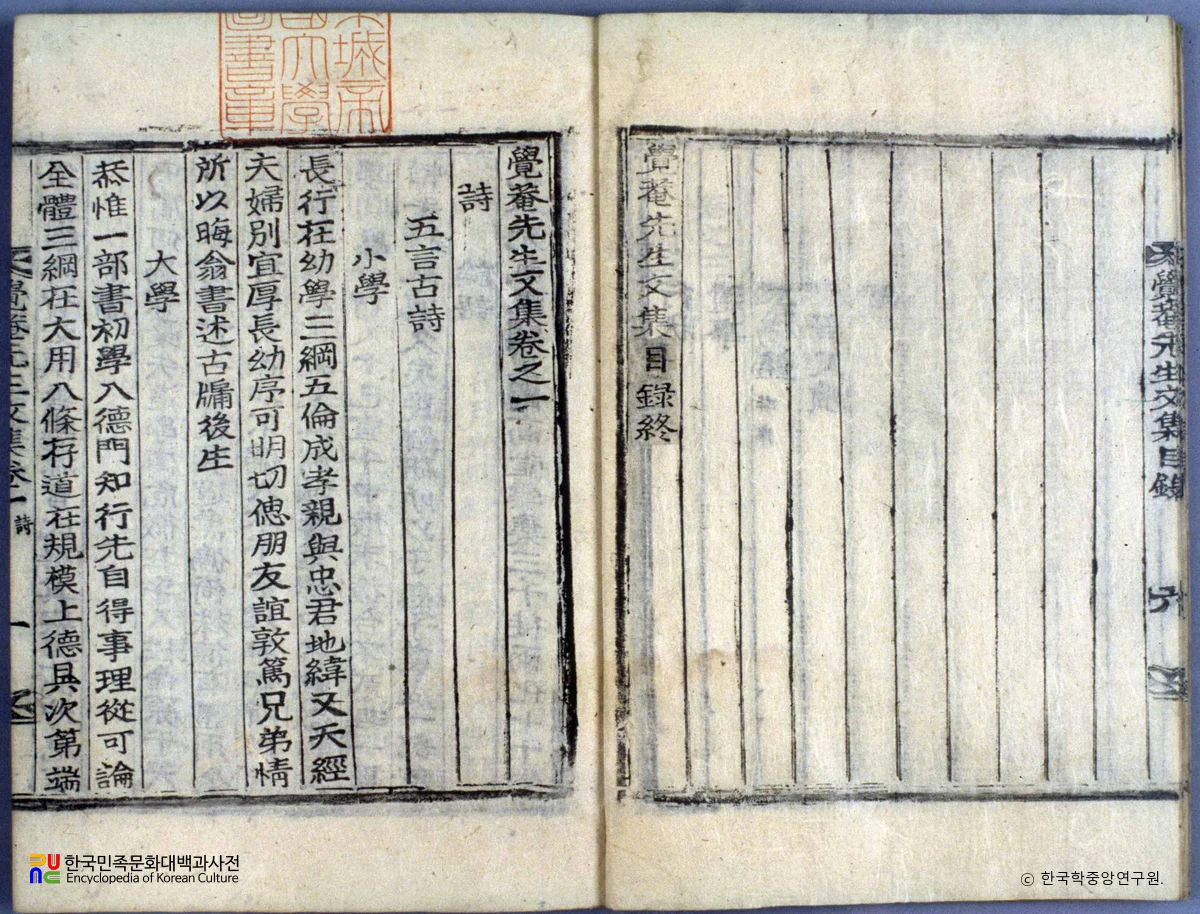 覺菴先生文集目錄
六
覺菴先生文集目錄終
京城帝
國大學
圖書章
覺菴先生文集卷之一
詩
五言古詩
小學
長行在幼學三綱五倫成孝親與忠君地緯又天經
夫婦別宜厚長幼序可明切偲朋友誼敦篤兄弟情
所以晦翁書述古牖後生
大學
恭惟一部書初學入德門知行先自得事理從可論
全體三綱在大用八條存道在規模上德具次第端
覺菴先生文集卷一 詩
一
한국민족문화대백과사전
Encyclopedia of Korean Culture
© 한국학중앙연구원.